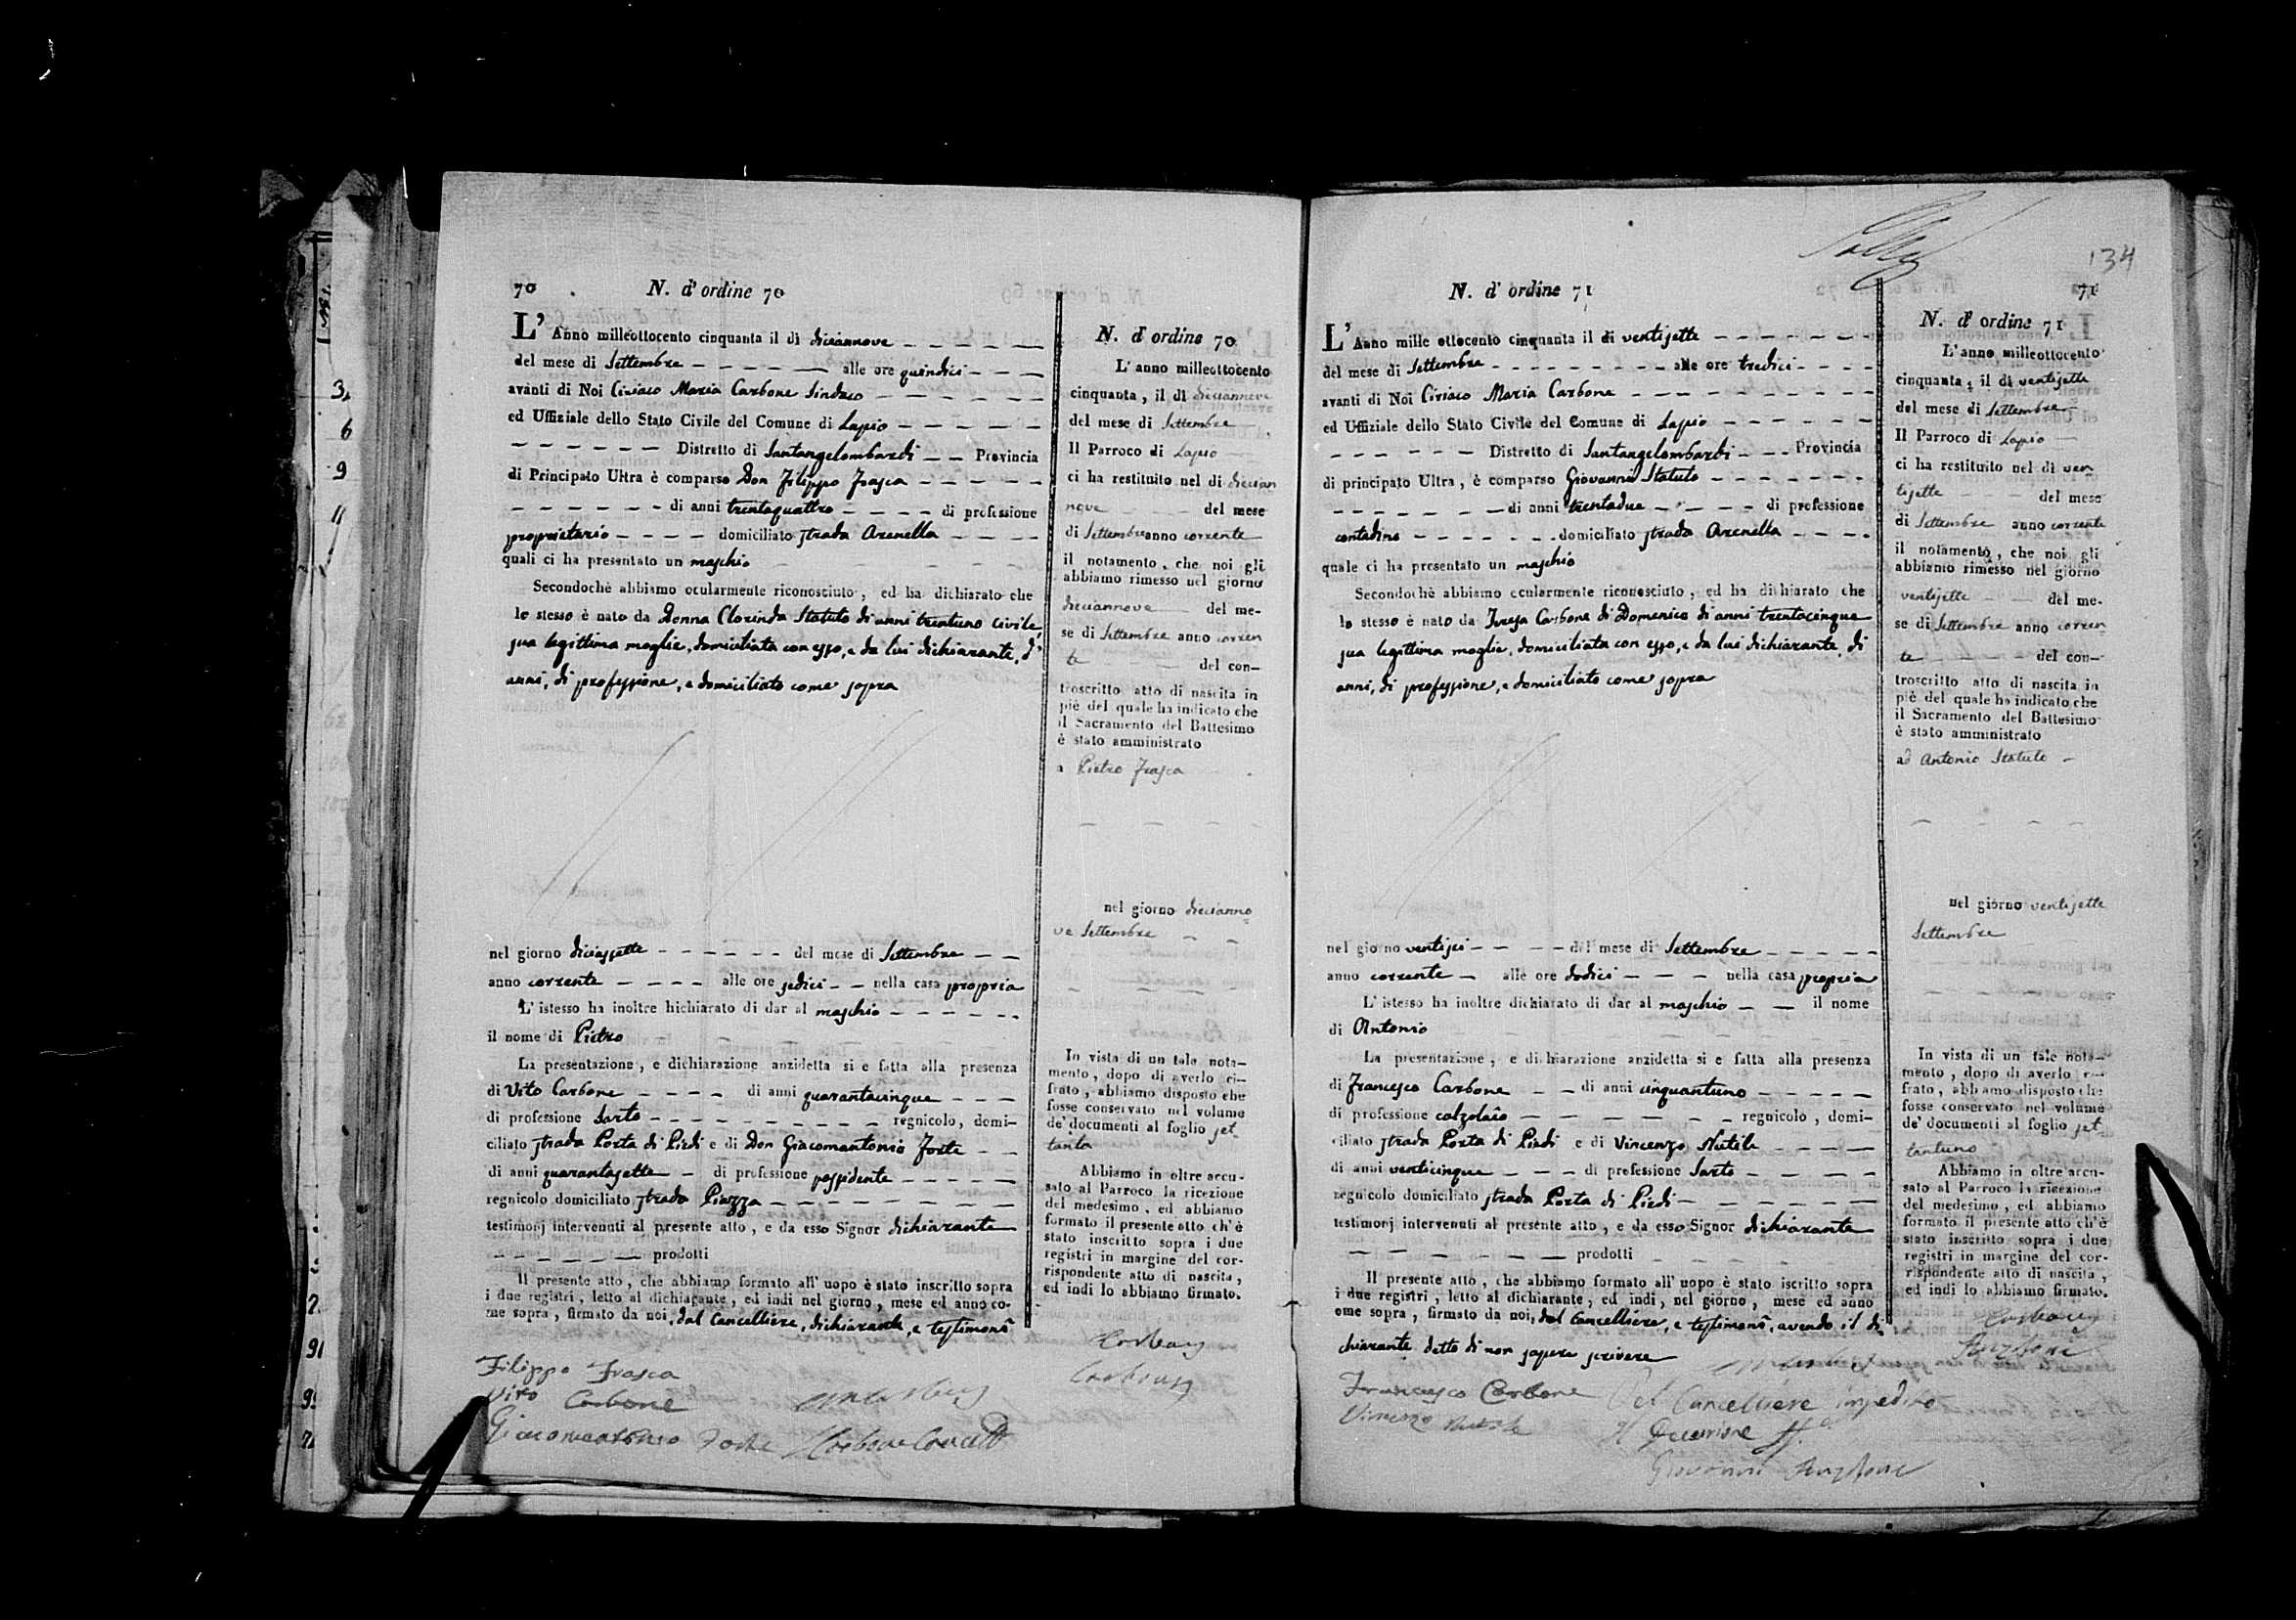 70 N. d' ordine 70
L' Anno milleottocento cinquanta il di diciannove
del mese di Settembre alle ore quindici
avanti di Noi Ciriaco Maria Carbone Sindaco
ed Uffiziale dello Stato Civile del Comune di Lapio
Distretto di Santangelombardi Provincia
di Principato Ultra è comparso Don Filippo Frasca
di anni trentaquattro di professione
proprietario domiciliato strada Arenella
quali ci ha presentato un maschio
Secondochè abbiamo ocularmente riconosciuto, ed ha dichiarato che
lo stesso è nato da Donna Clorinda Statuto di anni trentuno civile
sua legittima moglie, domiciliata con esso, e da lui dichiarante, d'
anni, di professione, e domiciliato come sopra
nel giorno diciassette del mese di Settembre
anno corrente alle ore sedici nella casa propria
L' istesso ha inoltre hichiarato di dar al maschio
il nome di Pietro
La presentazione, e dichiarazione anzidetta si e fatta alla presenza
di Vito Carbone di anni quarantacinque
di professione Sarto regnicolo, domi-
ciliato strada Porta di Piedi e di Don Giacomantonio Forte
di anni quarantasette di professione possidente
regnicolo domiciliato strada Piazza
testimonj intervenuti al presente atto, e da esso Signor dichiarante
prodotti
Il presente atto, che abbiamo formato all' uopo è stato inscritto sopra
i due registri, letto al dichiarante, ed indi nel giorno, mese ed anno co-
me sopra, firmato da noi, dal Cancelliere, dichiarante, e testimoni
Filippo Frasca
Vito Carbone
Giacomantonio Forte
N. d' ordine 70
L' anno milleottocento
cinquanta, il di diciannove
del mese di Settembre
Il Parroco di Lapio
ci ha restituito nel di dician
nove del mese
di Settembre anno corrente
il notamento, che noi gli
abbiamo rimesso nel giorno
diciannove del me-
se di Settembre anno corren
te del con-
troscritto atto di nascita in
piè del quale ha indicato che
il Sacramento del Battesimo
è stato amministrato
a Pietro Frasca
nel giorno dicianno
ve Settembre
In vista di un tale nota-
mento, dopo di averlo ci-
frato, abbiamo disposto che
fosse conservato nel volume
de' documenti al foglio set
tanta
Abbiamo in oltre accu-
sato al Parroco la ricezione
del medesimo, ed abbiamo
formato il presente atto ch' è
stato inscritto sopra i due
registri in margine del cor-
rispondente atto di nascita,
ed indi lo abbiamo firmato.
Carbone
Carbone
134
N. d' ordine 71
71
L' Anno mille ottocento cinquanta il di ventisette
del mese di Settembre alle ore tredici
avanti di Noi Ciriaco Maria Carbone
ed Uffiziale dello Stato Civile del Comune di Lapio
Distretto di Santangelombardi Provincia
di principato Ultra, è comparso Giovanni Statuto
di anni trentadue di professione
contadino domiciliato strada Arenella
quale ci ha presentato un maschio
Secondochè abbiamo ocularmente riconosciuto, ed ha dichiarato che
lo stesso è nato da Teresa Carbone di Domenico di anni trentacinque
sua legittima moglie, domiciliata con esso, e da lui dichiarante, di
anni, di professione, e domiciliato come sopra
nel giorno ventisei del mese di Settembre
anno corrente alle ore dodici nella casa propria
L' istesso ha inoltre dichiarato di dar al maschio il nome
di Antonio
La presentazione, e dichiarazione anzidetta si e fatta alla presenza
di Francesco Carbone di anni cinquantuno
di professione calzolaio regnicolo, domi-
ciliato strada Porta di Piedi e di Vincenzo Nutile
di anni venticinque di professione Sarto
regnicolo domiciliato strada Porta di Piedi
testimonj intervenuti al presente atto, e da esso Signor dichiarante
prodotti
Il presente atto, che abbiamo formato all' uopo è stato iscritto sopra
i due registri, letto al dichiarante, ed indi, nel giorno, mese ed anno
ome sopra, firmato da noi, dal Cancelliere, e testimoni, avendo il di
chiarante detto di non sapere scrivere
Francesco Carbone
Vincenzo Nutile
Pel Cancelliere impedito
Il Decurione ff.
Giovanni
N. d' ordine 71
L' anno milleottocento
cinquanta, il di ventisette
del mese di Settembre
Il Parroco di Lapio
ci ha restituito nel di ven
tisette del mese
di Settembre anno corrente
il notamento, che noi gli
abbiamo rimesso nel giorno
ventisette del me-
se di Settembre anno corren
te del con-
troscritto atto di nascita in
piè del quale ha indicato che
il Sacramento del Battesimo
è stato amministrato
ad Antonio Statuto
nel giorno ventisette
Settembre
In vista di un tale nota-
mento, dopo di averlo ci-
frato, abbiamo disposto che
fosse conservato nel volume
de' documenti al foglio set
tantuno
Abbiamo in oltre accu-
sato al Parroco la ricezione
del medesimo, ed abbiamo
formato il presente atto ch' è
stato inscritto sopra i due
registri in margine del cor-
rispondente atto di nascita,
ed indi lo abbiamo firmato.
Carbone